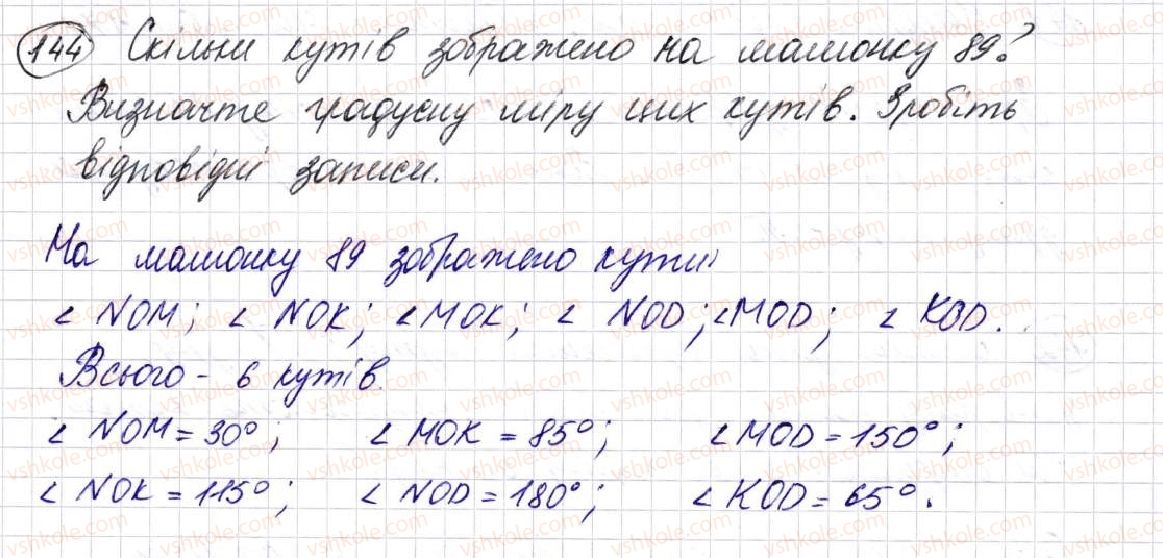 144 Скільки кутів зображено на малюнку 89?
Визначте градусну міру цих кутів. Зробіть
відповідні записи.
На малюнку 89 зображено кути:
∠ NOM; ∠ NOK; ∠ MOK; ∠ NOD; ∠ MOD; ∠ KOD.
Всього - 6 кутів.
∠ NOM = 30°; ∠ MOK = 85°; ∠ MOD = 150°;
∠ NOK = 115°; ∠ NOD = 180°; ∠ KOD = 65°.